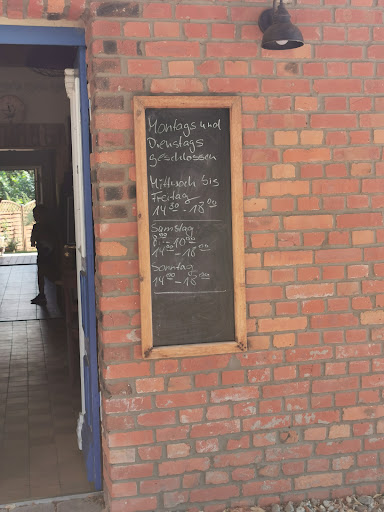 Montags und
Dienstags
geschlossen
Mittwoch bis
Freitag
14 30 - 18 00
Samstag
8 00 - 10 00
14 00 - 18 00
Sonntag
14 00 - 18 00